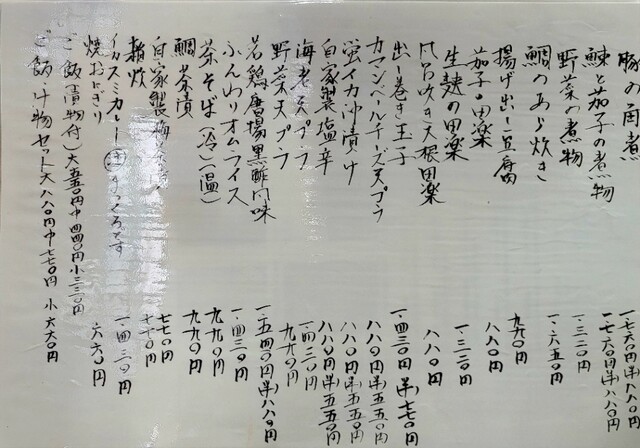 豚の角煮 一.七六〇円(半)八八〇円
鰊と茄子の煮物 一.七六〇円(半)八八〇円
野菜の煮物 一.三二〇円
鯛のあら炊き 一.六五〇円
揚げ出し豆腐 九九〇円
茄子の田楽 八八〇円
生麩の田楽 一.三二〇円
風呂吹き大根田楽 八八〇円
出し巻き玉子 一.四三〇円(半)七七〇円
カマンベールチーズ天プラ 八八〇円(半)五五〇円
蛍イカ沖漬け 八八〇円(半)五五〇円
自家製塩辛 八八〇円(半)五五〇円
海老天プラ 一.四三〇円
野菜天プラ 九九〇円
若鶏唐揚黒酢風味 一.五四〇円(半)八八〇円
ふんわりオムライス 一.四三〇円
茶そば(冷)(温) 九九〇円
鯛茶漬 九九〇円
自家製梅茶漬 七七〇円
雑炊 七七〇円
イカスミカレー まっくろです 一.四三〇円
焼おにぎり 六六〇円
ご飯(漬物付)大五五〇円中四四〇円小三三〇円
ご飯汁物セット大八八〇円中七七〇円小六六〇円